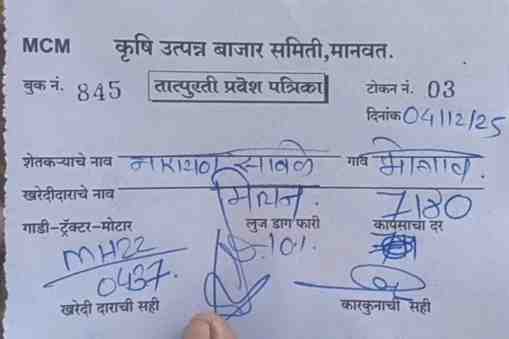 MCM कृषि उत्पन्न बाजार समिती,मानवत.
बुक नं. 845 तात्पुरती प्रवेश पत्रिका टोकन नं. 03
दिनांक 04/12/25
शेतकऱ्याचे नाव नारायण साबळे गाव
खरेदीदाराचे नाव 7180
गाडी-ट्रॅक्टर-मोटार लुज डाग फारी कापसाचा दर
MH22 101.
0437.
खरेदी दाराची सही कारकुनाची सही